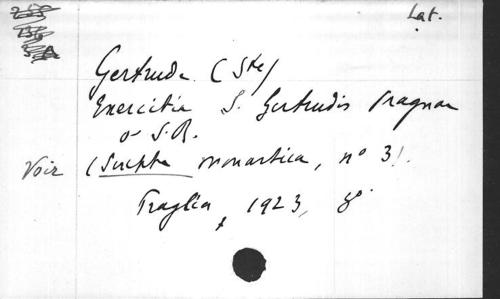 Lat.
Gertrude (Ste)
Exercitia S. Gertrudis magnae
o. S. B.
Voir (Scripta monastica, nº 3).
Praglia, 1923, 8º